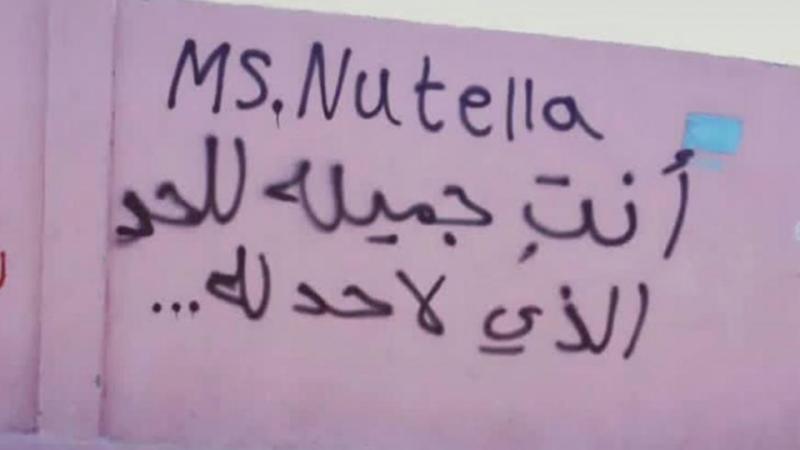 MS. Nutella
أنتِ جميله للحد
الذي لا حد له...